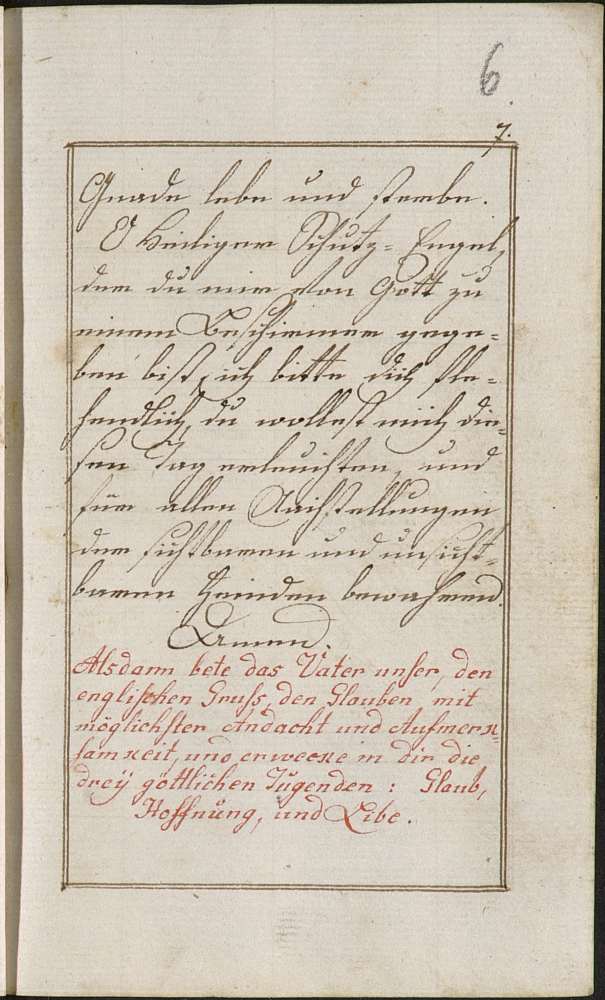 6
7.
Gnade lebe und sterbe.
O Heiliger Schutz-Engel,
der du mir von Gott zu
einem Beschirmer gege-
ben bist, ich bitte dich fle-
hendlich, du wollest mich die-
sen Tag erleuchten, und
für allen Nachstellungen
der sichtbaren und unsicht-
baren Feinden bewahren.
Amen.
Alsdann bete das Vater unser, den
englischen Gruß, den Glauben mit
möglichster Andacht und Aufmerk-
samkeit, und erwecke in dir die
dreÿ göttlichen Tugenden: Glaub,
Hoffnung, und Libe.